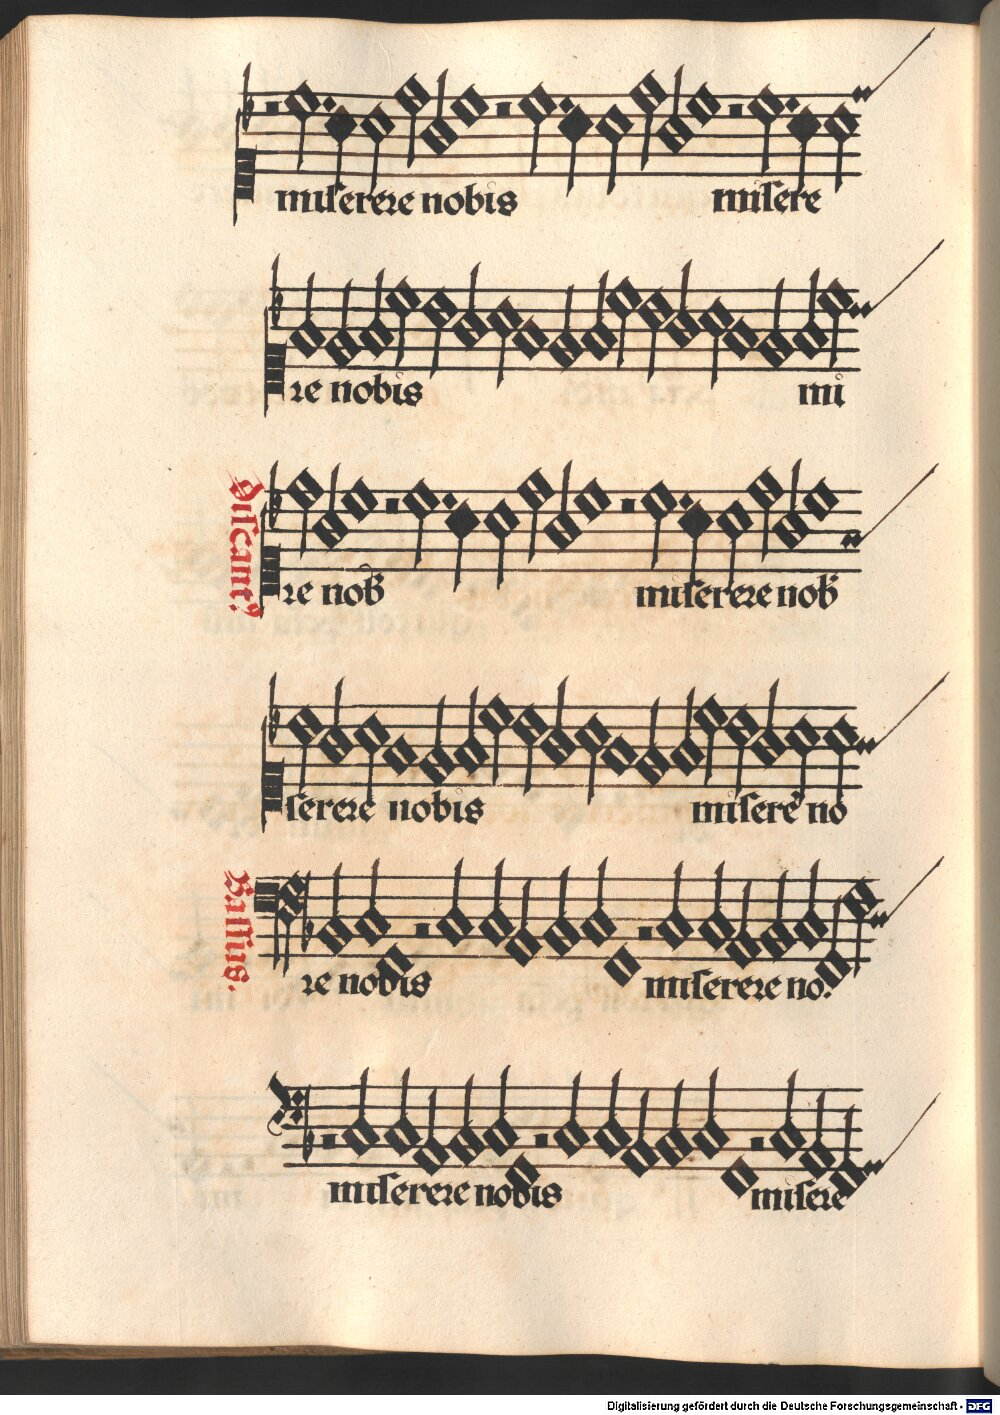 miserere nobis misere
re nobis mi
Discant9
re nob̄ miserere nob̄
serere nobis misere no
Bassus.
re nobis miserere no.
miserere nobis misere
Digitalisierung gefördert durch die Deutsche Forschungsgemeinschaft - DFG